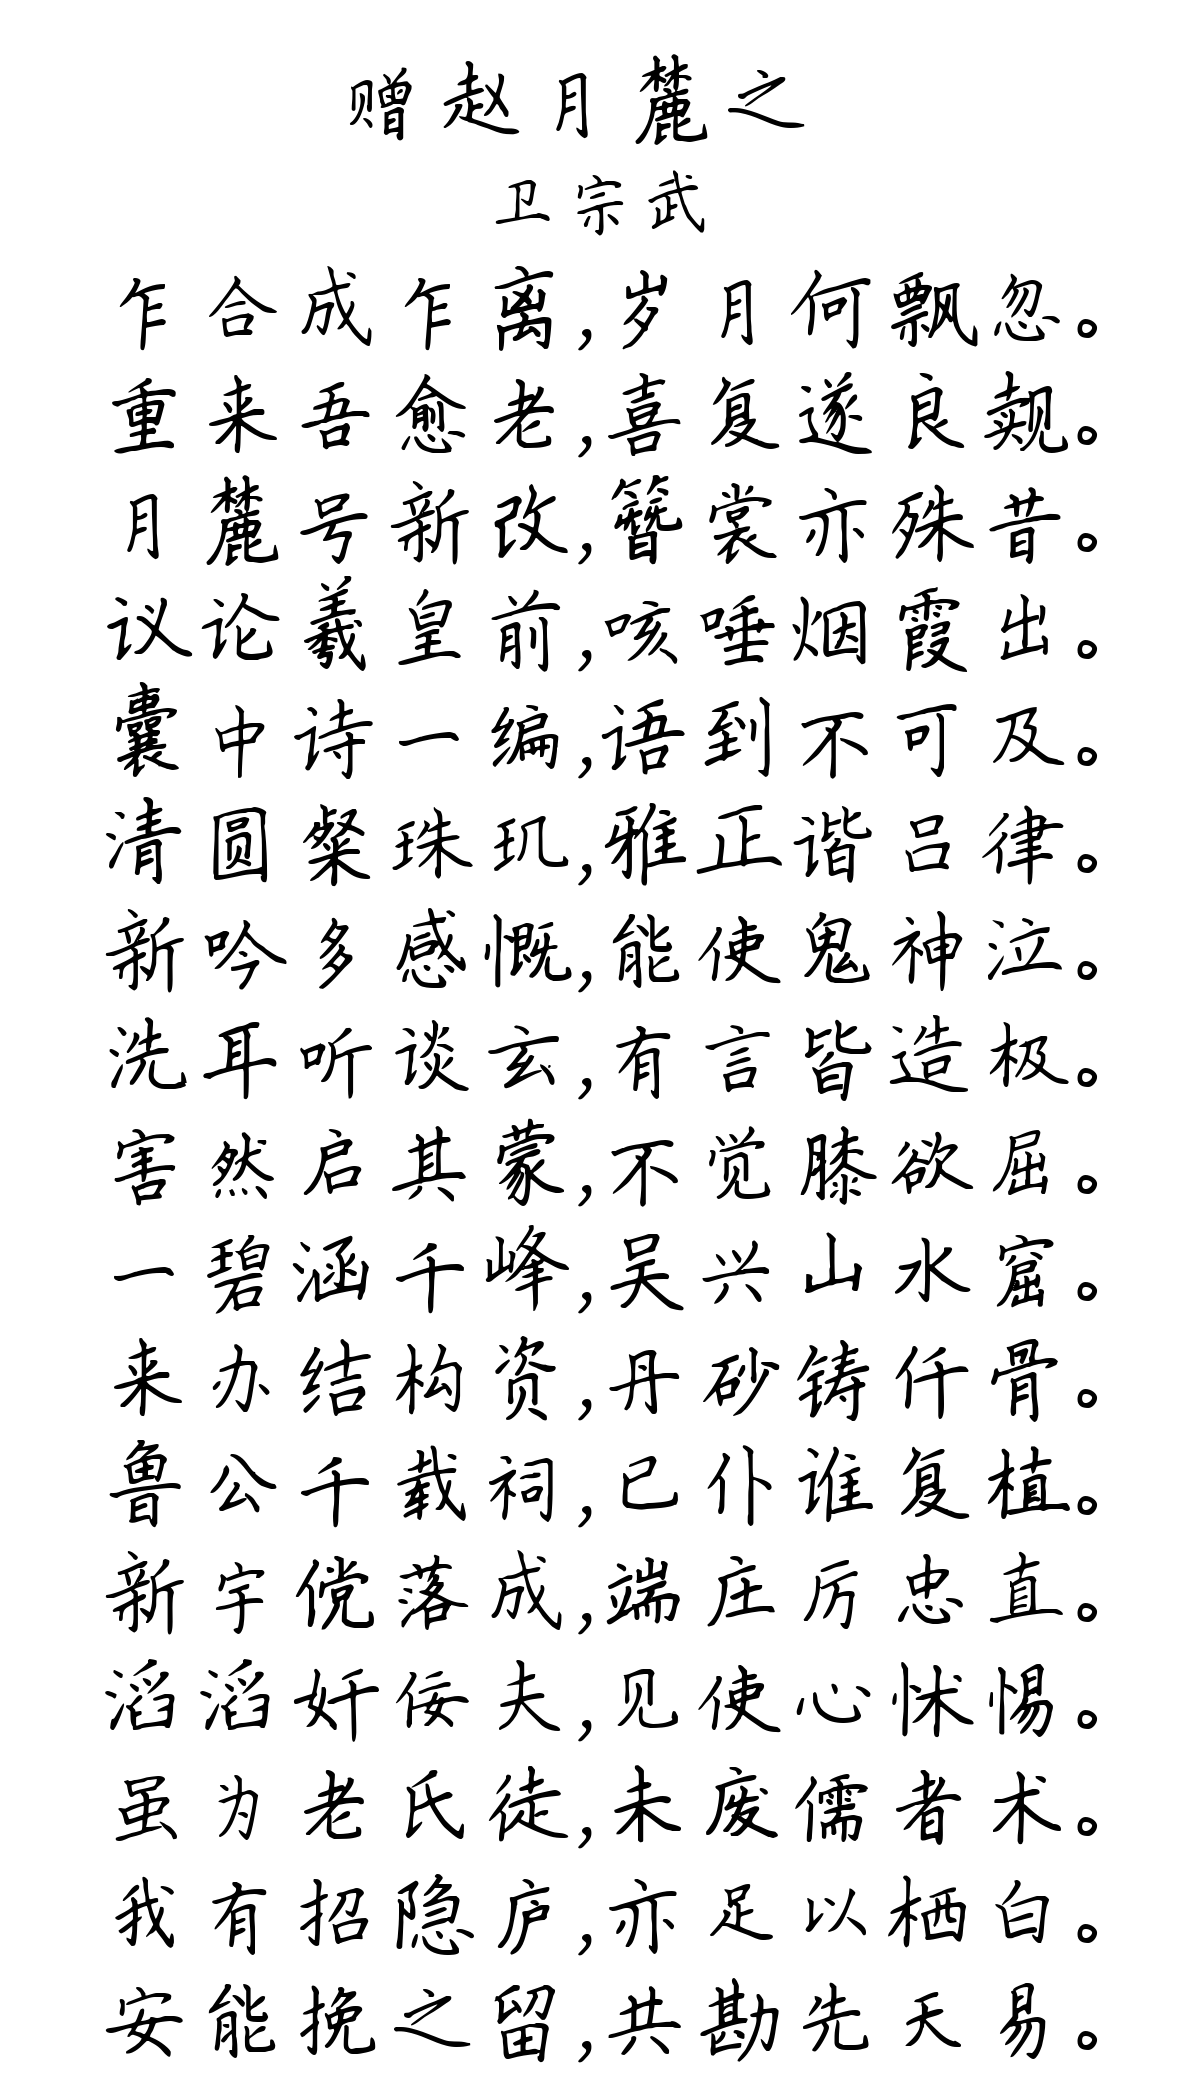 赠赵月麓之
卫宗武
乍合成乍离,岁月何飘忽。
重来吾愈老,喜复遂良觌。
月麓号新改,簪裳亦殊昔。
议论羲皇前,咳唾烟霞出。
囊中诗一编,语到不可及。
清圆粲珠玑,雅正谐吕律。
新吟多感慨,能使鬼神泣。
洗耳听谈玄,有言皆造极。
害然启其蒙,不觉膝欲屈。
一碧涵千峰,吴兴山水窟。
来办结构资,丹砂铸仟骨。
鲁公千载祠,已仆谁复植。
新宇傥落成,端庄厉忠直。
滔滔奸佞夫,见使心怵惕。
虽为老氏徒,未废儒者术。
我有招隐庐,亦足以栖白。
安能挽之留,共勘先天易。